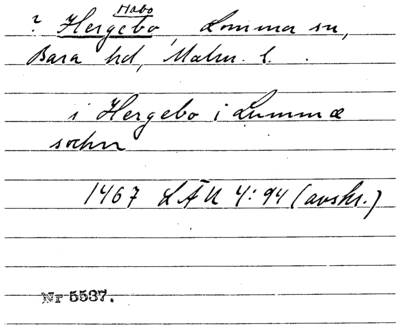 Habo
? Hergebo, Lomma sn,
Bara hd, Malm. l.
i Hergebo i Lummæ
sochn
1467 LÄU 4:94 (avskr.)
Nr 5537.